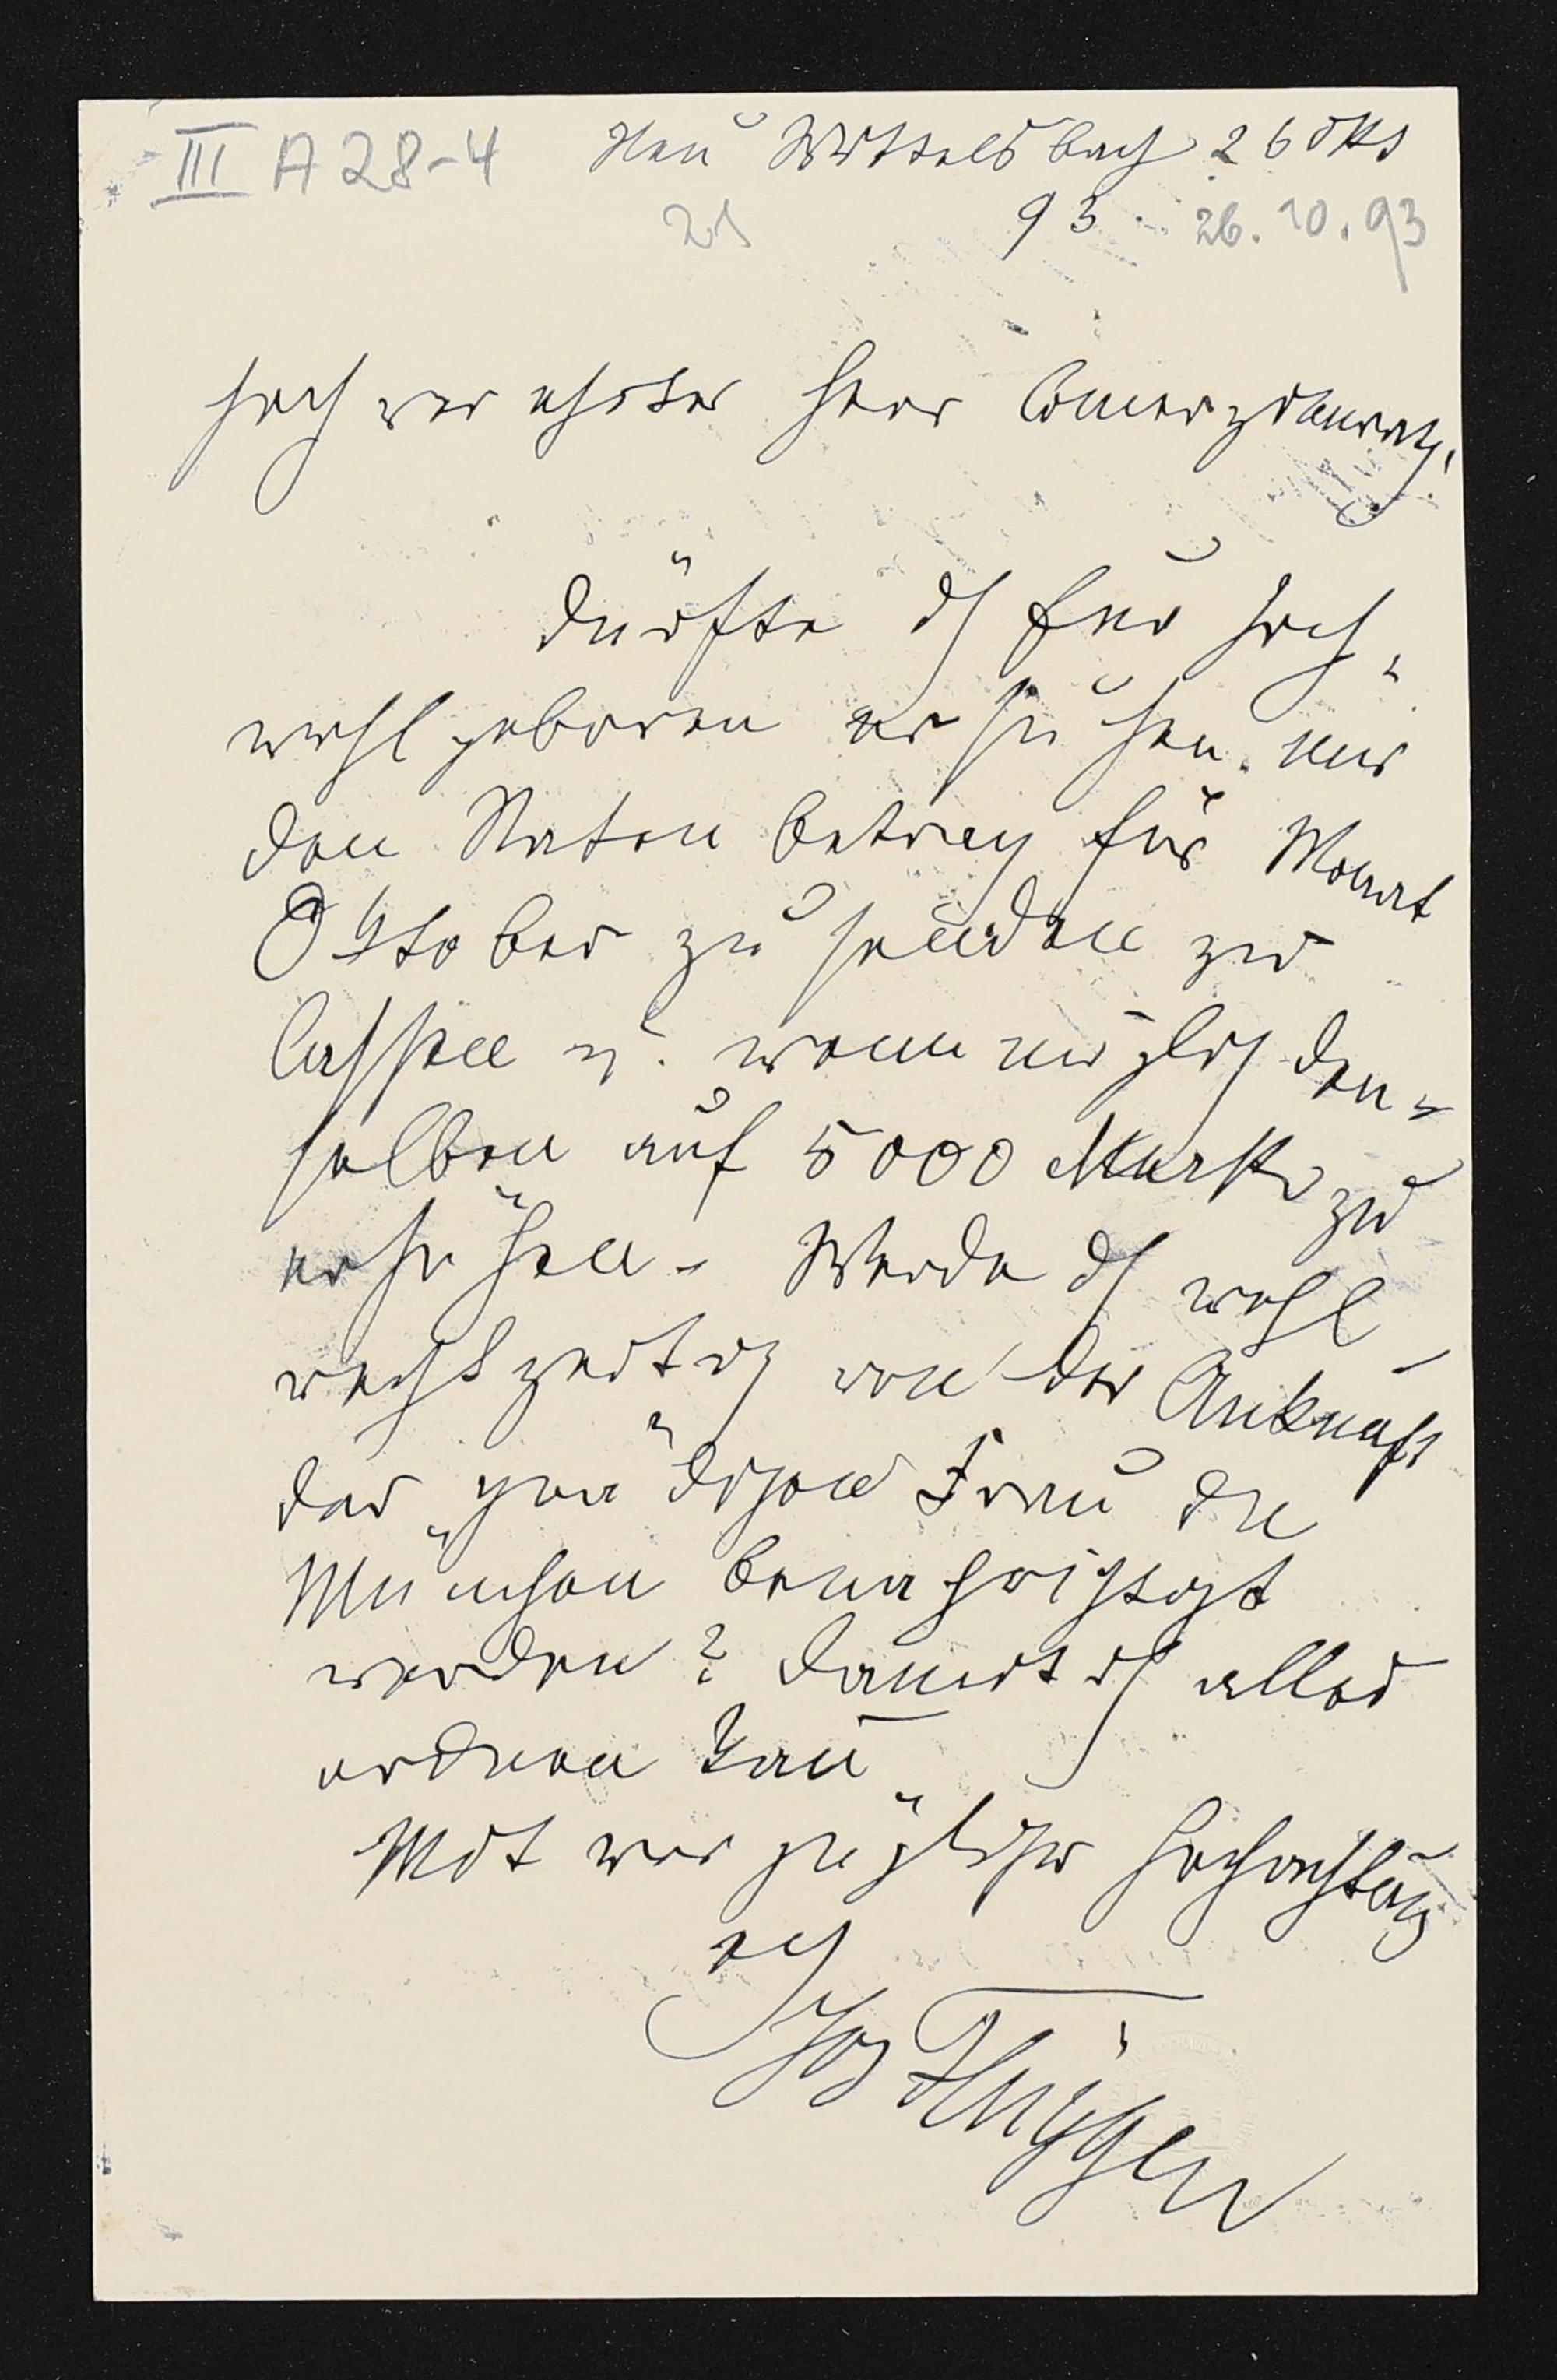 III A 28-4 Neu Wittelsbach 26 Okt
93. 26.10.93
Hochverehrter Herr Comerzienrath,
Dürfte ich Euer Hoch-
wohlgeboren ersuchen mir
den Raten betrag für Monat
Oktober zu senden zu
lassen u. womöglich den-
selben auf 5000 Mark zu
erhöhen. Werde ich wohl
rechtzeitig von der Ankunft
der gnädigen Frau in
München benachrichtigt
werden? damit ich alles
ordnen kan
Mit vorzüglicher Hochachtung
Jos Flüggen